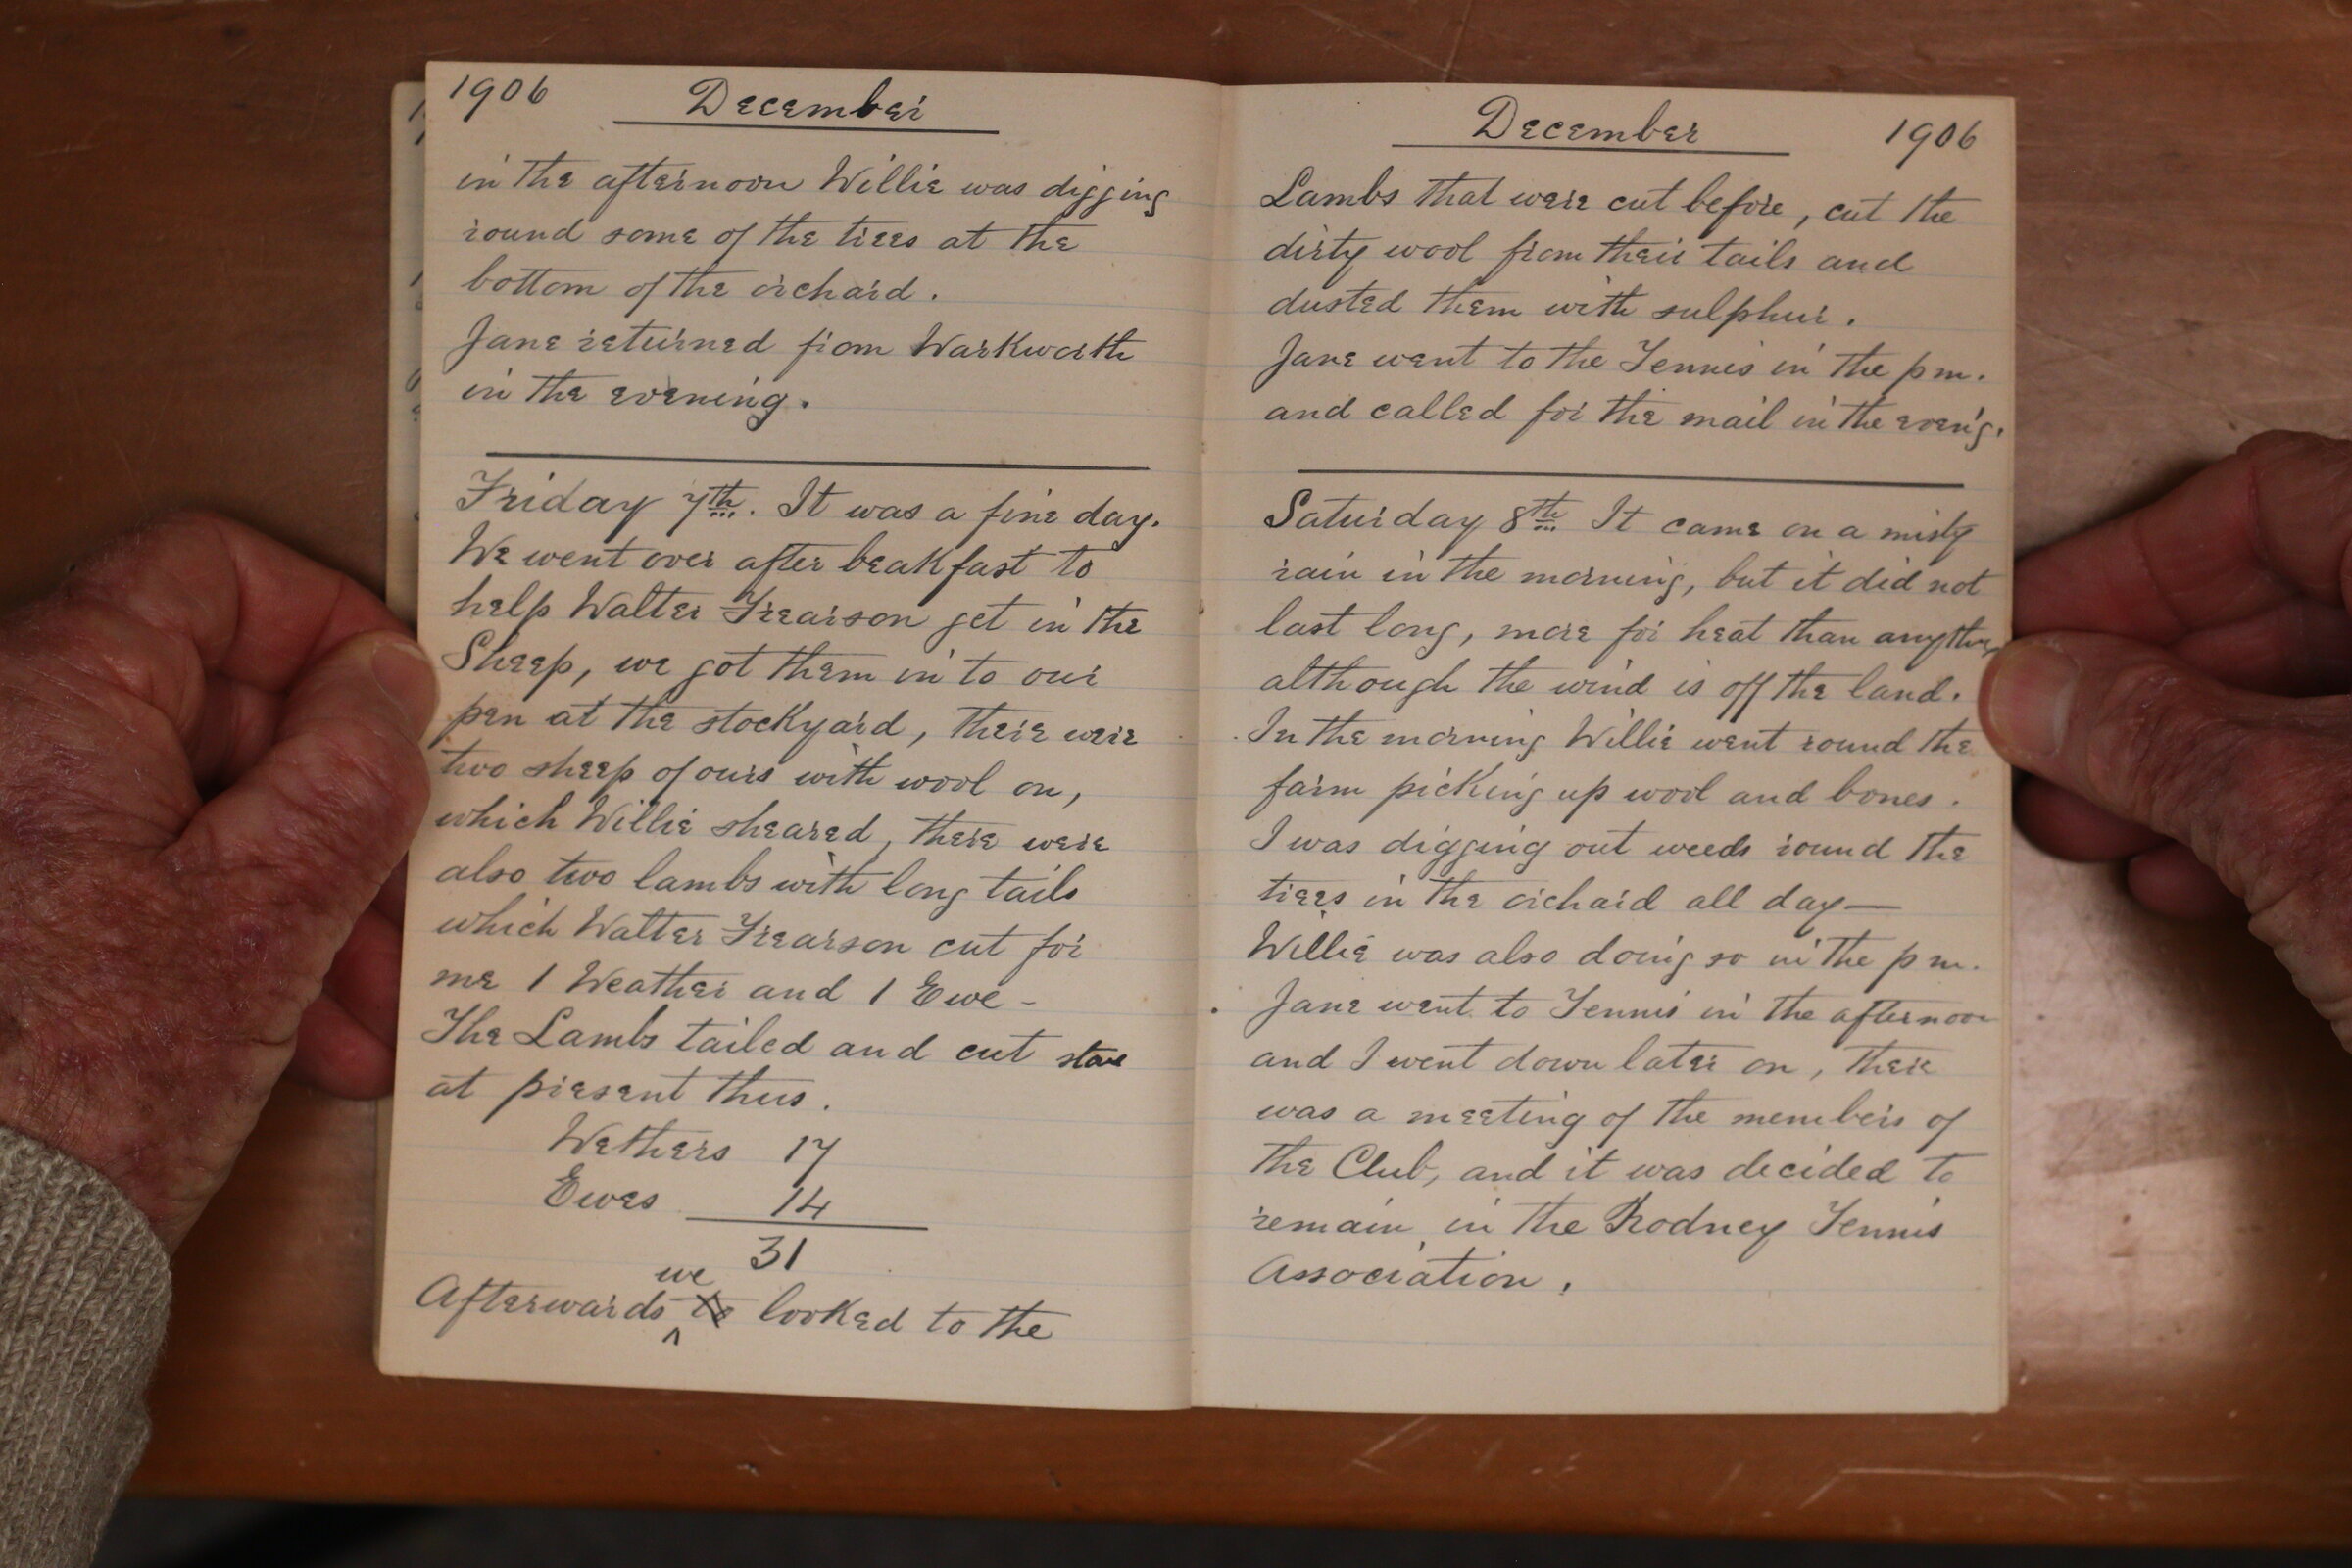 1906 December
in the afternoon Willie was digging
round some of the trees at the
bottom of the orchard.
Jane returned from Warkworth
in the evening.
Friday 7th. It was a fine day.
We went over after beakfast to
help Walter Frearson get in the
Sheep, we got them in to our
pen at the stockyard, there were
two sheep of ours with wool on,
which Willie sheared, there were
also two lambs with long tails
which Walter Frearson cut for
me 1 Weather and 1 Ewe -
The Lambs tailed and cut
at present thus.
Wethers 17
Ewes 14
31
we
Afterwards to looked to the
December 1906
Lambs that were cut before, cut the
dirty wool from their tails and
dusted them with sulphur.
Jane went to the Tennis in the pm.
and called for the mail in the even'g.
Saturday 8th It came on a misty
rain in the morning, but it did not
last long, more for heat than
although the wind is off the land.
In the morning Willie went round the
farm picking up wool and bones.
I was digging out weeds round the
trees in the orchard all day—
Willie was also doing so in the pm.
Jane went to Tennis in the afternoon
and I went down later on, there
was a meeting of the members of
the Club, and it was decided to
remain in the Rodney Tennis
Association.